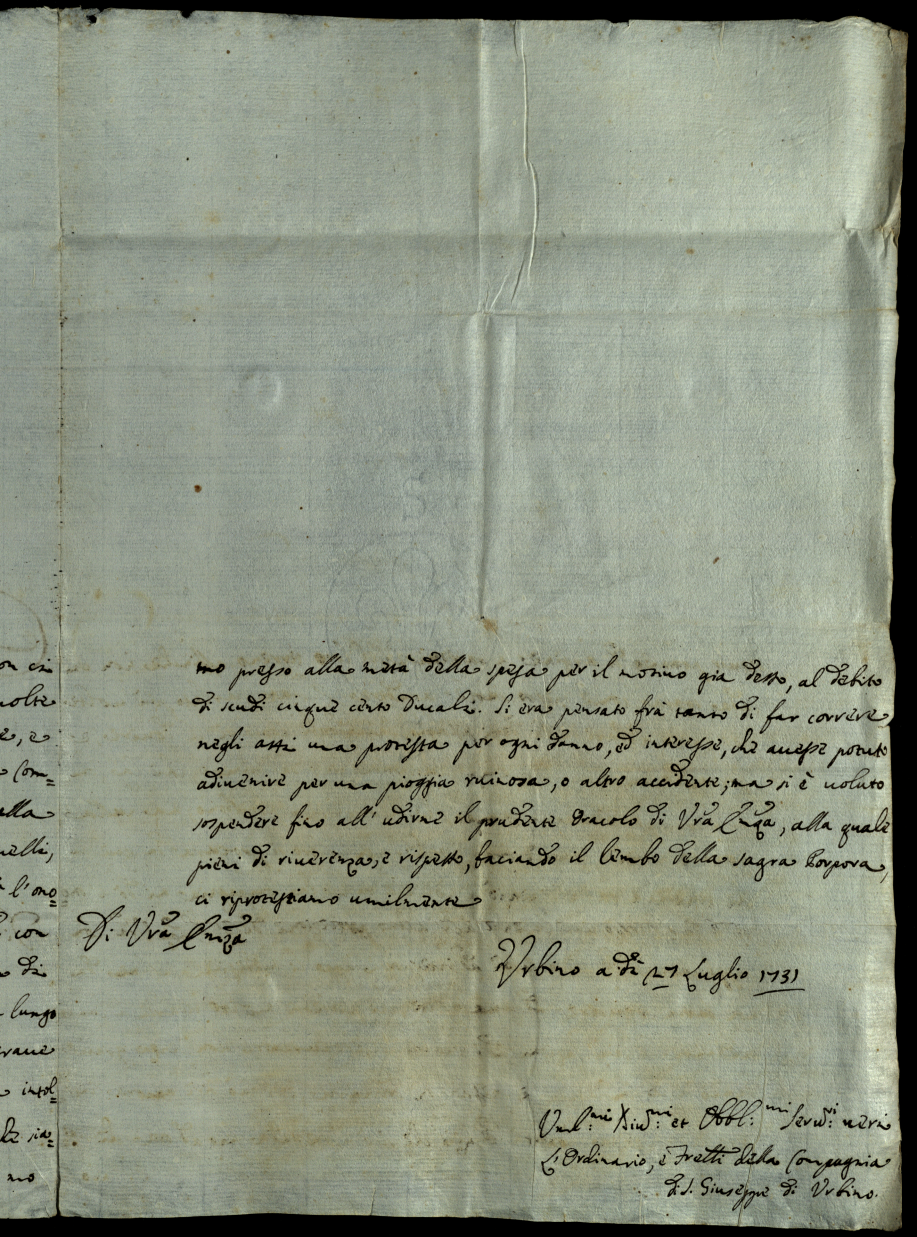 on ci
molte
e, e
Com=
ella
uelli,
l'ono=
con
di
lungo
rave
intol=
sia=
mo
mo presso alla metà della spesa per il nostro gia detto, al debito
di scudi cinque cento Ducali. Si era pensato frà tanto di far correre
negli atti una protesta per ogni danno, ed interesse, che auesse potuto
adiuenire per una pioggia ruinosa, o altro accidente; ma si è uoluto
sospendere fino all' udirne il prudente Oracolo di Vrã Emza, alla quale
pieni di riuerenza, e rispetto, baciando il lembo della sagra Porpora,
ci riprotestiamo umilmente
Di Vrã Emza
Vrbino a dì 27 Luglio 1731
Vml:mi Diu:mi et Obbl:mi Seru:ri ueri
L'Ordinario, e Fratti della Compagnia
di S. Giuseppe di Vrbino.